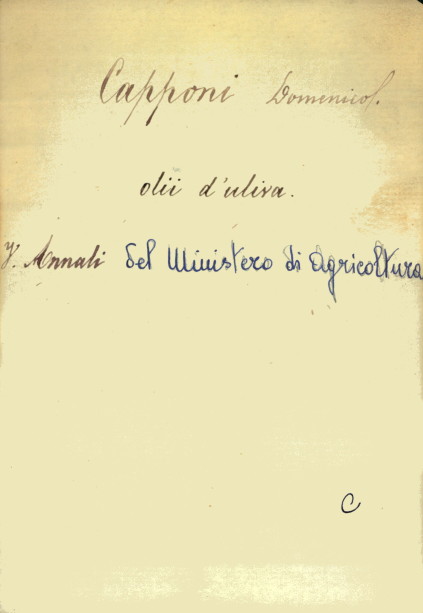 Capponi Domenico.
olii d'uliva.
V. Annali del Ministero di Agricoltura
C